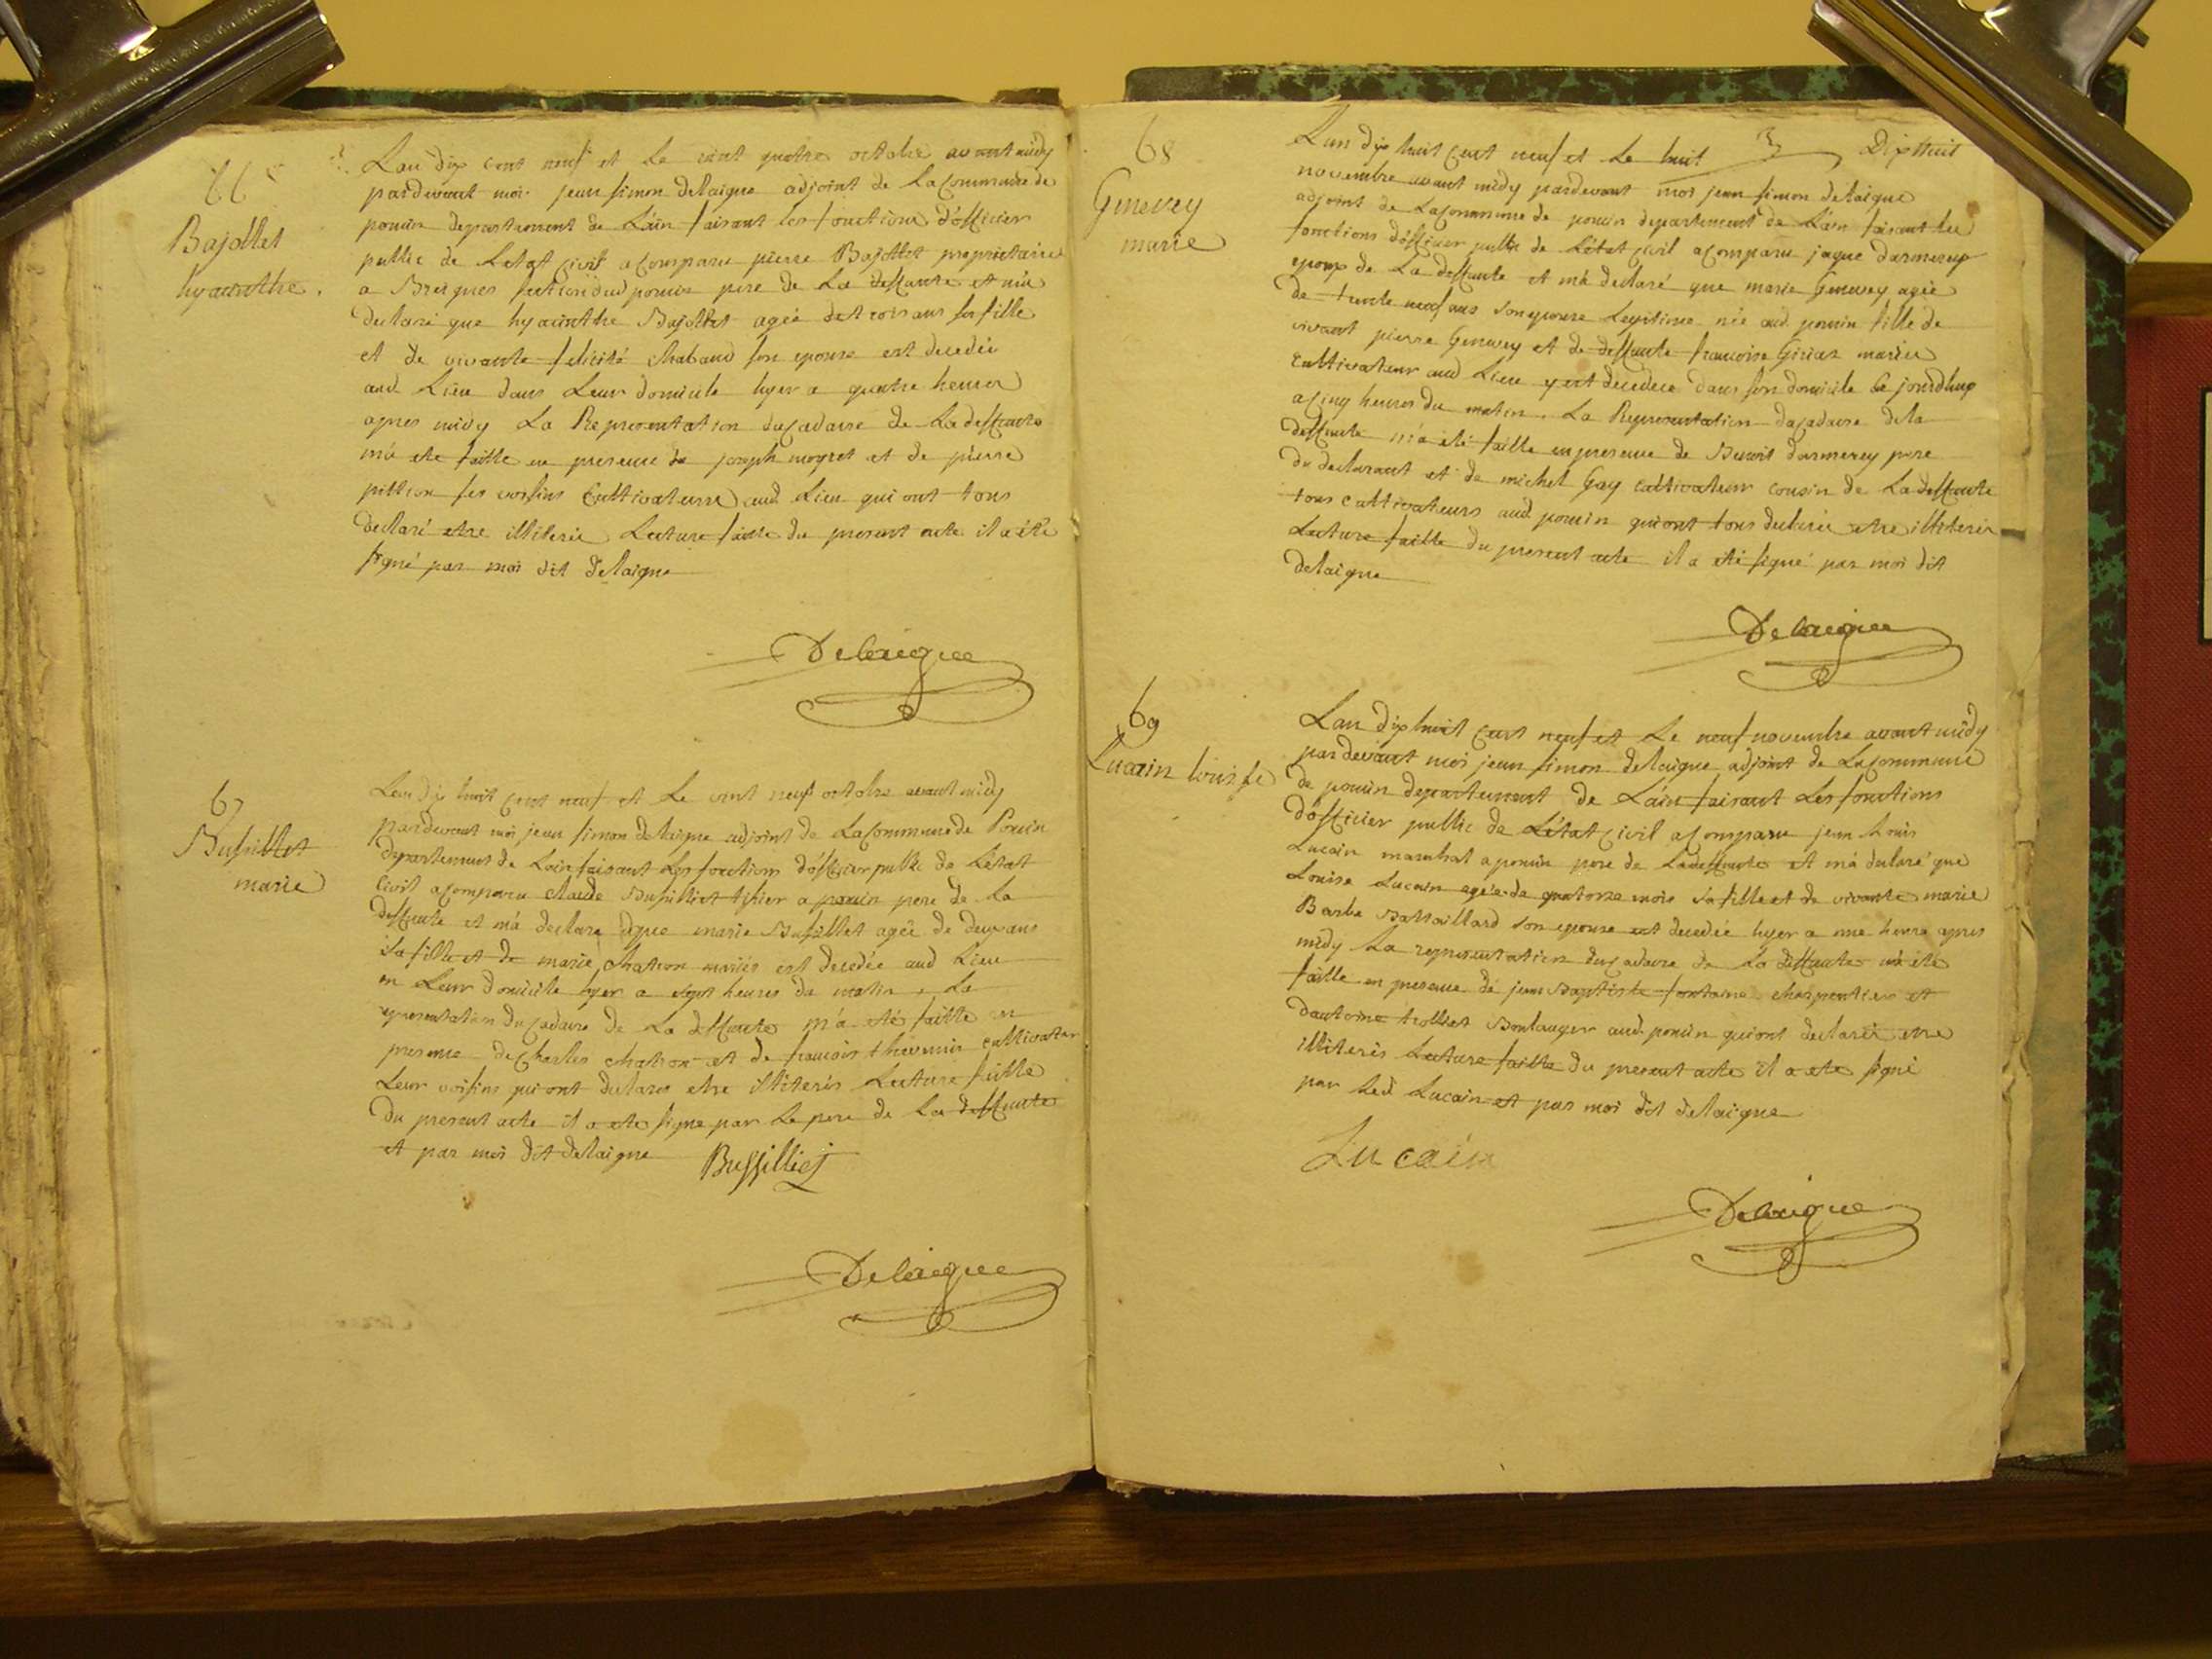 66
Bajollet
hyacinthe.
Lan dix cent neuf et Le vint quatre octobre avant midy
pardevant moi jean simon delaigue adjoint de La Commune de
poncin departement de Láin faisant les fonctions d'officier
public de Letat Civil a Comparu pierre Bajollet proprietaire
a Breignes section dud poncin pere de La deffante et m'a
declaré que hyacinthe Bajollet ageé de trois ans sa fille
et de vivante felicité Chabaud son epouse est decedée
aud Lieu dans Leur domicile hyer a quatre heures
apres midy La Representation du Cadavre de La deffante
m'a ete faitte en presence de joseph moyret et de pierre
pittion ses voisins Cultivateurs aud Lieu qui ont tous
declaré etre illiterés Lecture faitte du present acte il a été
signé par moi dit delaigue
Delaigue
67
Bussillet
marie
Lan dix huit Cent neuf et Le vint neuf octobre avant midy
pardevant moi jean simon delaigue adjoint de La Commune de Poncin
departement de Lain faisant Les fonctions d'officier public de Létat
Civil a Comparu Claude Bussilliet tissier a poncin pere de La
deffante et m'a declare que marie Bussillet agée de deux ans
sa fille et de marie Chatron mariés est decedée aud Lieu
en Leur domicile hyer a sept heures du matin, La
representation du Cadavre de La deffante m'a eté faitte en
presence de Charles Chatron et de francois thevenin cultivater
Leur voisins qui ont declares etre illiterés Lecture faitte
du present acte il a ete signe par Le pere de La deffante
et par moi dit delaigue Bussilliet
Delaigue
Dix huit
68
Genevey
marie
Lan dix huit Cent neuf et Le huit
novembre avant midy pardevant moi jean simon delaigue
adjoint de La Commune de poncin departement de Láin faisant les
fonctions d'officier public de Létat Civil a Comparu jaque darmerey
epoux de La deffante et m'a declaré que marie Genevey ageé
de trente neuf ans son epouse Legitime née aud poncin fille de
vivant pierre Genevey et de deffante francoise Girias mariés
Cultivateur aud Lieu y est decedée dans son domicile Ce jourdhuy
a Cinq heures du matin. La Representation du Cadavre de la
deffante m'a été faitte en presence de Benoit darmerey pere
du declarant et de michel Gay Cultivateur cousin de La deffante
tous cultivateurs aud poncin qui ont tous declarés etre illiteres
Lecture faitte du present acte il a eté signé par moi dit
delaigue
Delaigue
69
Lucain Louise
Lan dix huit Cent neuf et Le neuf novembre avant midy
par devant moi jean simon delaigue adjoint de La Commune
de poncin departement de Láin faisant Les fonctions
d'officier public de Létat Civil a Comparu jean Louis
Lucain marechal a poncin pere de La deffante et m'a declaré que
Louise Lucain agée de quatorze mois sa fille et de vivante marie
Barbe Battaillard son epouse est decedée hyer a une heure apres
midy La representation du Cadavre de La deffante m'a ete
faitte en presence de jean Baptiste fontaine charpentier et
dantoine trolliet Boulanger aud. poncin qui ont declarés etre
illiterés Lecture faitte du present acte il a ete signé
par Led Lucain et par moi dit delaigue
Lucain
Delaigue